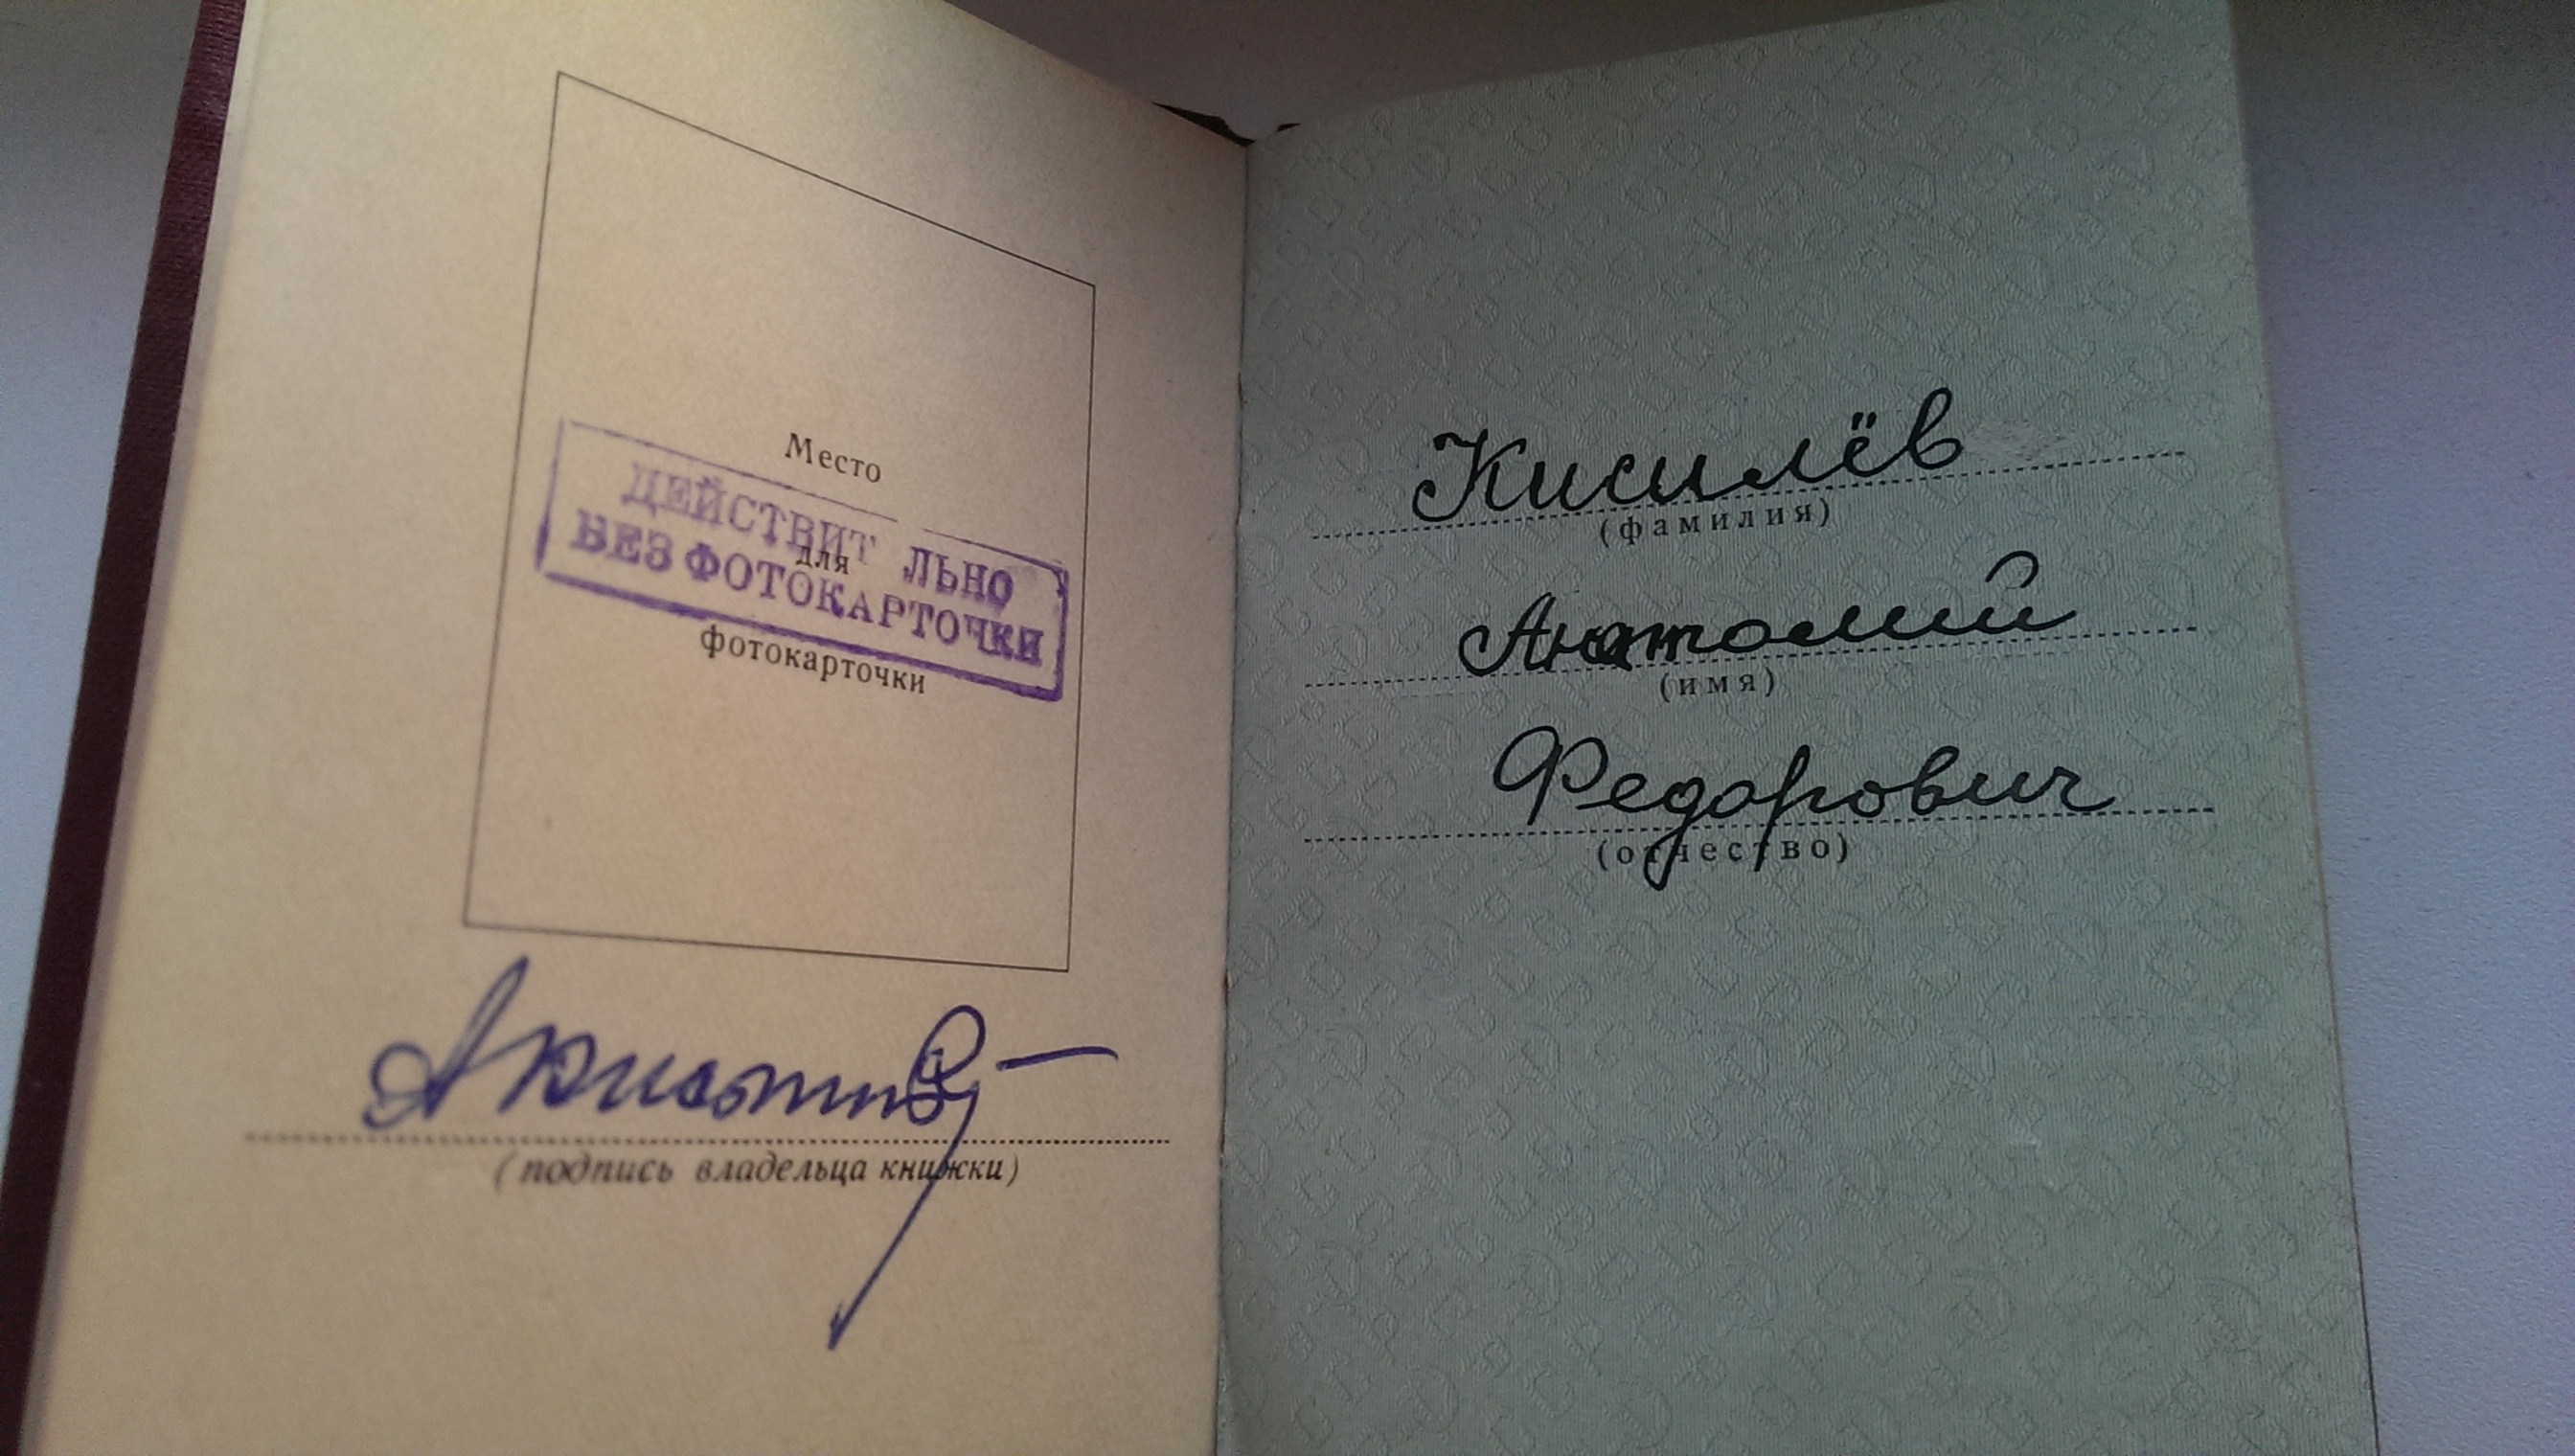 Место
ДЕЙСТВИТ ЛЬНО
для
БЕЗ ФОТОКАРТОЧКИ
фотокарточки
(подпись владельца книжки)
Кисилёв
(фамилия)
Анатолий
(имя)
Федорович
(отчество)